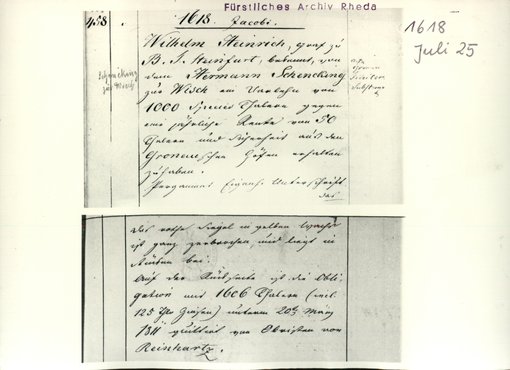 Fürstliches Archiv Rheda
458
1618. Jacobi.
1618
Juli 25
Wilhelm Heinrich, Graf zu
B. T. Steinfurt, bekennt, von
dem Hermann Schencking
zur Wisch ein Darlehn von
1000 Species Thalern gegen
eine jährliche Rente von 50
Thalern und Sicherheit aus den
Gronauschen Höfen erhalten
zu haben.
Pergament Eigenh. Unterschrift
das
Schencking
zur Wisch
das rothe Siegel in gelben Wachs
ist ganz zerbrochen und liegt in
Stücken bei.
Auf der Rückseite ist die Obli-
gation mit 1606 Thalern (incl.
125 Thlr Zinsen) unterm 20ten März
1811 quittirt von Obristen von
Reinhartz.